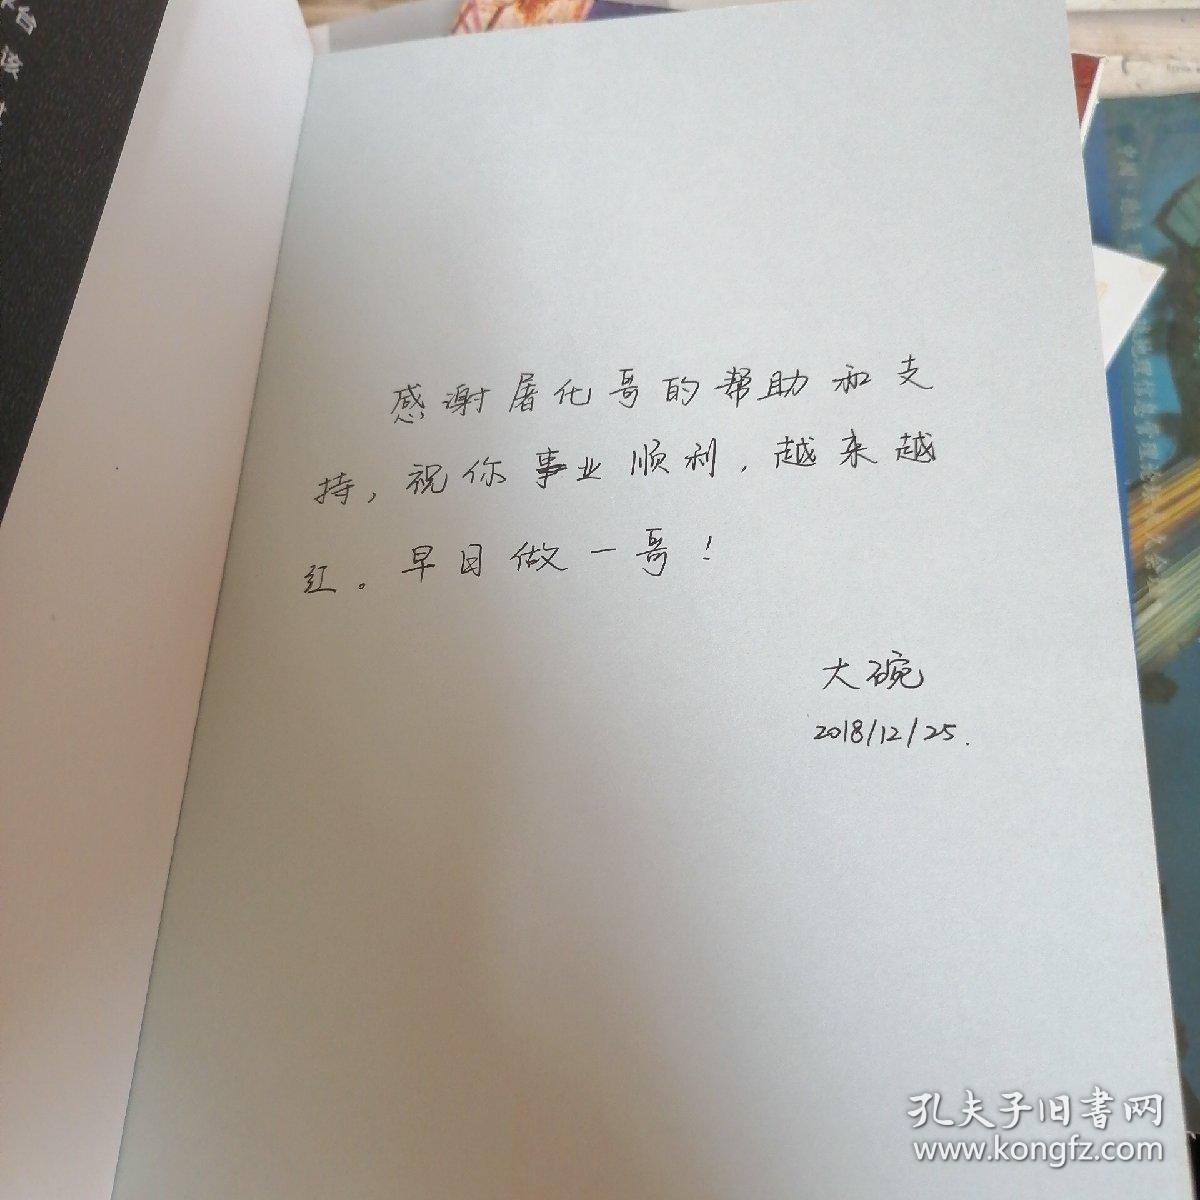 感谢屠化哥的帮助和支
持，祝你事业顺利，越来越
红。早日做一哥！
大碗
2018/12/25.
孔夫子旧书网
www.kongfz.com